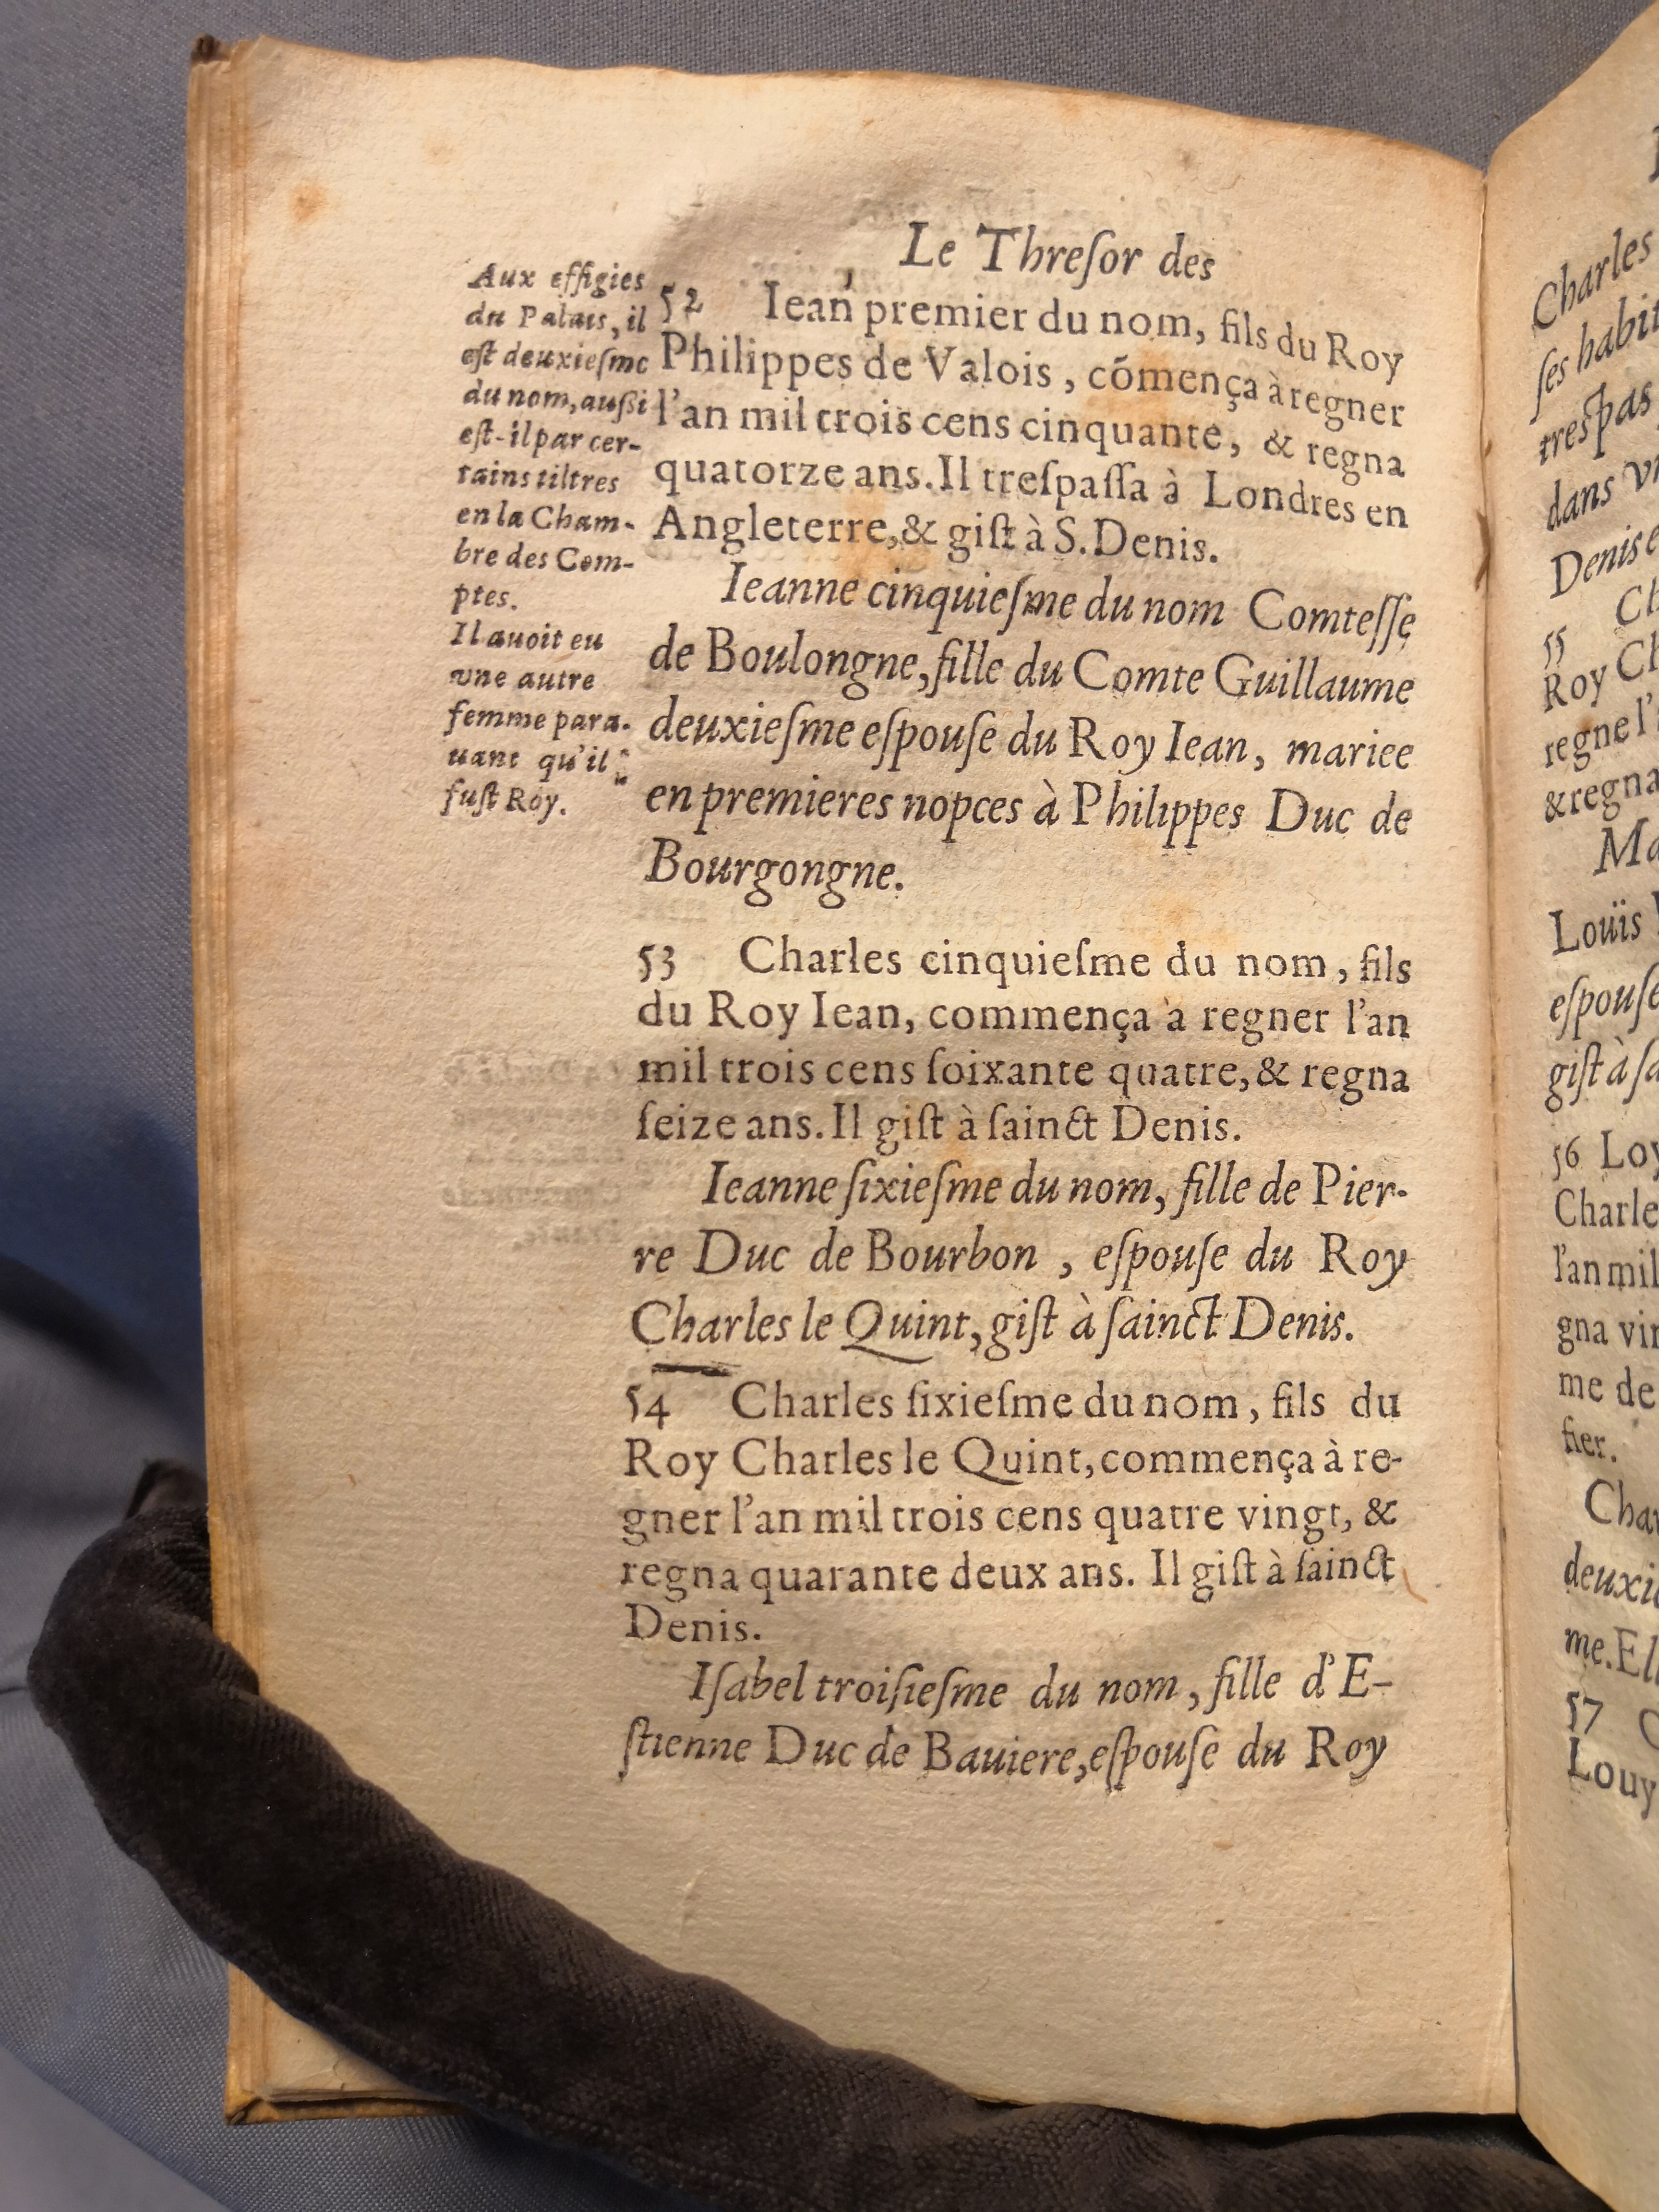 Le Threſor des
Aux effigies
du Palais, il
eſt deuxieſme
du nom, außi
eſt-il par cer-
tains tiltres
en la Cham-
bre des Com-
ptes.
Il auoit eu
vne autre
femme para-
uant qu'il
fuſt Roy.
52 Iean premier du nom, fils du Roy
Philippes de Valois, cõmença à regner
l'an mil trois cens cinquante, & regna
quatorze ans. Il treſpaſſa à Londres en
Angleterre, & giſt à S. Denis.
Ieanne cinquieſme du nom Comteſſe
de Boulongne, fille du Comte Guillaume
deuxieſme eſpouſe du Roy Iean, mariee
en premieres nopces à Philippes Duc de
Bourgongne.
53 Charles cinquieſme du nom, fils
du Roy Iean, commença à regner l'an
mil trois cens ſoixante quatre, & regna
ſeize ans. Il giſt à ſainct Denis.
Ieanne ſixieſme du nom, fille de Pier-
re Duc de Bourbon , eſpouſe du Roy
Charles le Quint, giſt à ſainct Denis.
54 Charles ſixieſme du nom, fils du
Roy Charles le Quint, commença à re-
gner l'an mil trois cens quatre vingt, &
regna quarante deux ans. Il giſt à ſainct
Denis.
Iſabel troiſieſme du nom, fille d'E-
ſtienne Duc de Bauiere, eſpouſe du Roy
Charles
ſes habit
treſpas
dans
Denis
55
Roy
regne l'
& regna
Louïs
eſpouſe
giſt à
56 Loy
Charle
l'an mil
gna
me de
fier.
deuxi
me. El
57
Louy